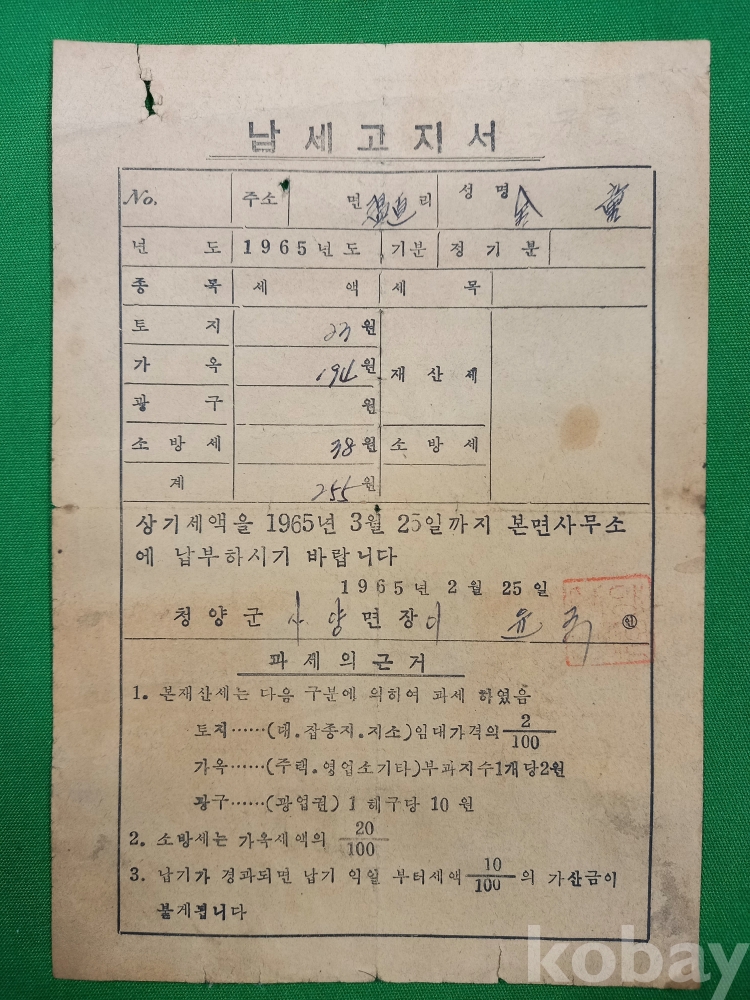 납세고지서
No. 주소 면 리 성명 金
년도 1965년도 기분 정기분
종목 세액 세목
토지 23원
가옥 194원 재산세
광구 원
소방세 38원 소방세
계 255원
상기세액을 1965년 3월 25일까지 본면사무소
에 납부하시기 바랍니다
1965년 2월 25일
청양군 사양면장 이 윤 ㊞
과세의근거
1. 본재산세는 다음 구분에 의하여 과세 하였음
토지……(대.잡종지.지소)임대가격의 2/100
가옥……(주택.영업소기타)부과지수1개당2원
광구……(광업권) 1 해구당 10 원
2. 소방세는 가옥세액의 20/100
3. 납기가 경과되면 납기 익월 부터세액 10/100 의 가산금이
붙게됩니다
kobay